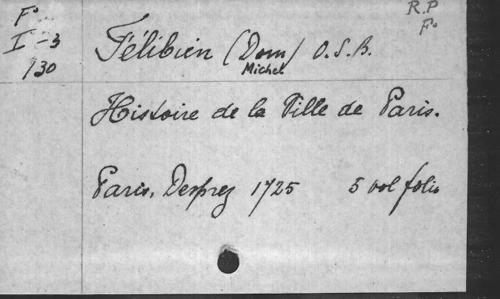 F° R.P
I-3 F°
130 Félibien (Dom) O.S.B.
Michel
Histoire de la Ville de Paris.
Paris, Desprez 1725 5 vol folio